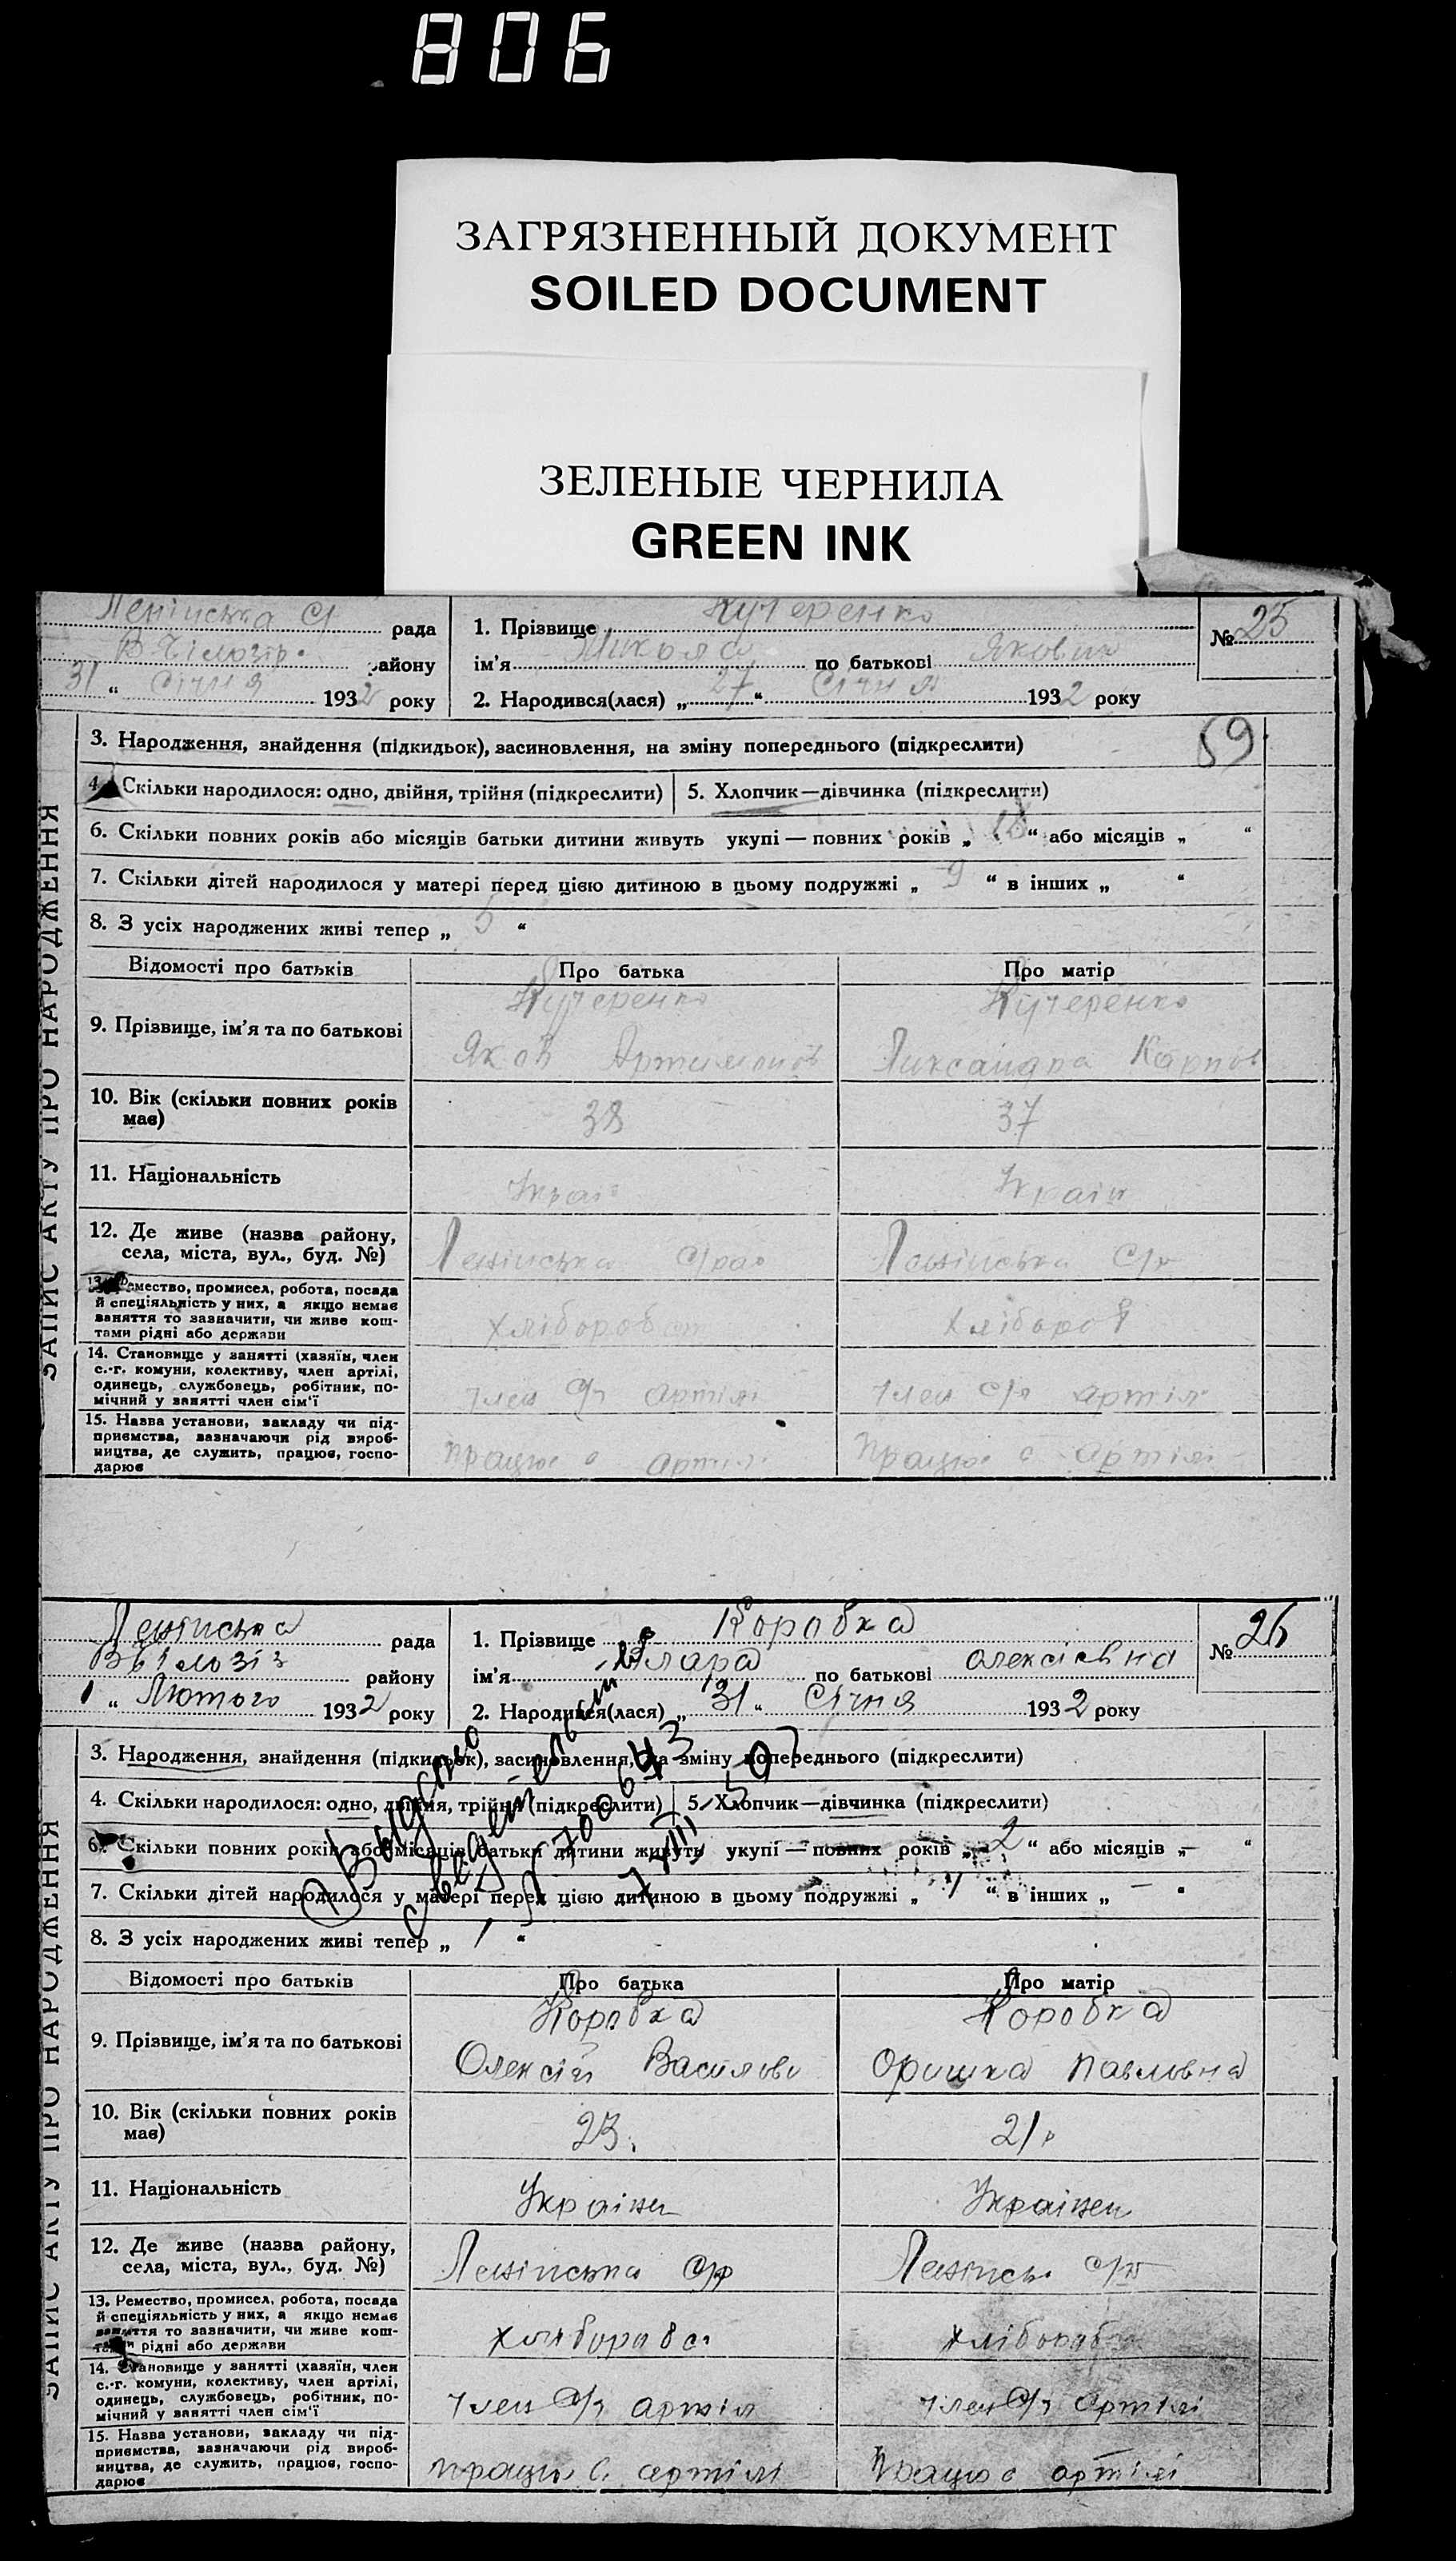 806
ЗАГРЯЗНЕННЫЙ ДОКУМЕНТ
SOILED DOCUMENT
ЗЕЛЕНЫЕ ЧЕРНИЛА
GREEN INK
Ленінська рада
району
31 " Січня 1932 року
1. Прізвище Кучеренко
ім'я Микола по батькові Якович
2. Народився(лася) „ 27 " Січня 1932 року
№ 25
59
ЗАПИС АКТУ ПРО НАРОДЖЕННЯ
3. Народження, знайдення (підкидьок), засиновлення, на зміну попереднього (підкреслити)
4. Скільки народилося: одно, двійня, трійня (підкреслити) 5. Хлопчик—дівчинка (підкреслити)
6. Скільки повних років або місяців батьки дитини живуть укупі — повних років „ 18 " або місяців „ "
7. Скільки дітей народилося у матері перед цією дитиною в цьому подружжі „ 9 " в інших „ "
8. З усіх народжених живі тепер „ 5 "
Відомості про батьків Про батька Про матір
9. Прізвище, ім'я та по батькові
Кучеренко Кучеренко
Яков Карпов
10. Вік (скільки повних років має) 38 37
11. Національність Украї Україн
12. Де живе (назва району, села, міста, вул., буд. №) Ленінська Ленінська
13. Ремество, промисел, робота, посада
й спеціяльність у них, а якщо немає
заняття то зазначити, чи живе кош-
тами рідні або держави
хлібороб хлібороб
14. Становище у занятті (хазяїн, член
с.-г. комуни, колективу, член артілі,
одинець, службовець, робітник, по-
мічний у занятті член сім'ї
член с/г артілі член с/г артіл
15. Назва установи, закладу чи під-
приємства, зазначаючи рід вироб-
ництва, де служить, працює, госпо-
дарює
працює артілі працює артілі
Ленінська рада
району
1 " Лютого 1932 року
1. Прізвище Коробка
ім'я Клара по батькові Олексієвна
2. Народився(лася) „ 31 " Січня 1932 року
№ 26
ЗАПИС АКТУ ПРО НАРОДЖЕННЯ
3. Народження, знайдення (підкидьок), засиновлення, на зміну попереднього (підкреслити)
4. Скільки народилося: одно, двійня, трійня (підкреслити) 5. Хлопчик—дівчинка (підкреслити)
6. Скільки повних років або місяців батьки дитини живуть укупі — повних років „ 2 " або місяців „ — "
7. Скільки дітей народилося у матері перед цією дитиною в цьому подружжі „ " в інших „ — "
8. З усіх народжених живі тепер „ 1 "
Выдано
свидетельство
700643
Відомості про батьків Про батька Про матір
9. Прізвище, ім'я та по батькові
Коробка Коробка
Олексій Васильови Оришка Павловна
10. Вік (скільки повних років має) 23 21
11. Національність Українец Українец
12. Де живе (назва району, села, міста, вул., буд. №) Ленінська с/р Ленінсь с/р
13. Ремество, промисел, робота, посада
й спеціяльність у них, а якщо немає
заняття то зазначити, чи живе кош-
тами рідні або держави
хлібороб
14. Становище у занятті (хазяїн, член
с.-г. комуни, колективу, член артілі,
одинець, службовець, робітник, по-
мічний у занятті член сім'ї
член с/г артіл член с/г артілі
15. Назва установи, закладу чи під-
приємства, зазначаючи рід вироб-
ництва, де служить, працює, госпо-
дарює
працює с артілі працює с артілі